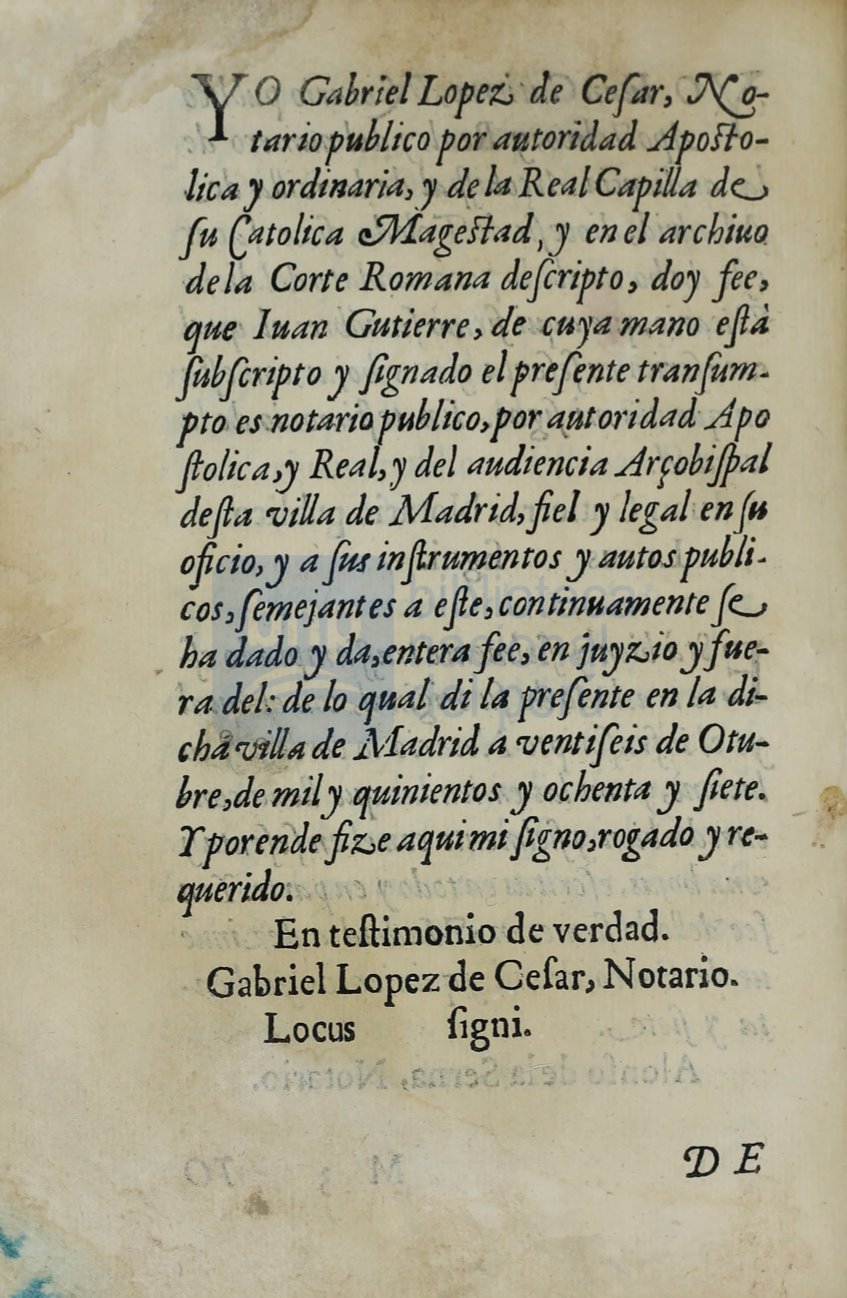 YO Gabriel Lopez de Ceſar, No-
tario publico por autoridad Apoſto-
lica y ordinaria, y de la Real Capilla de
ſu Catolica Mageſtad, y en el archiuo
dela Corte Romana deſcripto, doy fee,
que Iuan Gutierre, de cuya mano eſtà
ſubſcripto y ſignado el preſente tranſum-
pto es notario publico, por autoridad Apo
ſtolica, y Real, y del audiencia Arçobiſpal
deſta villa de Madrid, fiel y legal en ſu
oficio, y a ſus inſtrumentos y autos publi-
cos, ſemejantes a eſte, continuamente ſe
ha dado y da, entera fee, en juyzio y fue-
ra del: de lo qual di la preſente en la di-
cha villa de Madrid a ventiſeis de Otu-
bre, de mil y quinientos y ochenta y ſiete.
Y porende fize aqui mi ſigno, rogado y re-
querido.
En teſtimonio de verdad.
Gabriel Lopez de Ceſar, Notario.
Locus ſigni.
Alonſo dela Serna, Notario.
DE